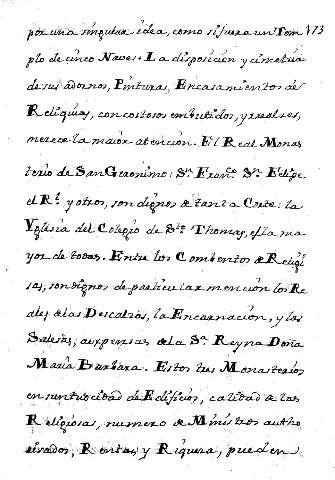 por una singular idea, como si fuera un Tem 173
plo de cinco Naves. La disposicion y cimetria
de sus adornos, Pinturas, Encasamientos de
Reliquias, con costosos embutidos, y reales,
merece la maior atencion. El Real Monas
terio de San Geronimo: Sn. Franco. Sn. Felipe
el Rl. y otros, son dignos de tanta Corte: la
Yglesia del Colegio de Sto. Thomas, es la ma
yor de todas. Entre los Combentos de Religi
sas, son dignos de particular mencion los Re
ales de las Descalzas, la Encarnacion, y las
Salesas, a expensas de la Sra. Reyna Doña
Maria Barbara. Estos tres Monasterios
en suntuocidad de Edificios, calidad de las
Religiosas, numero de Ministros autho
rizados, Rentas, y Riqueza, pueden